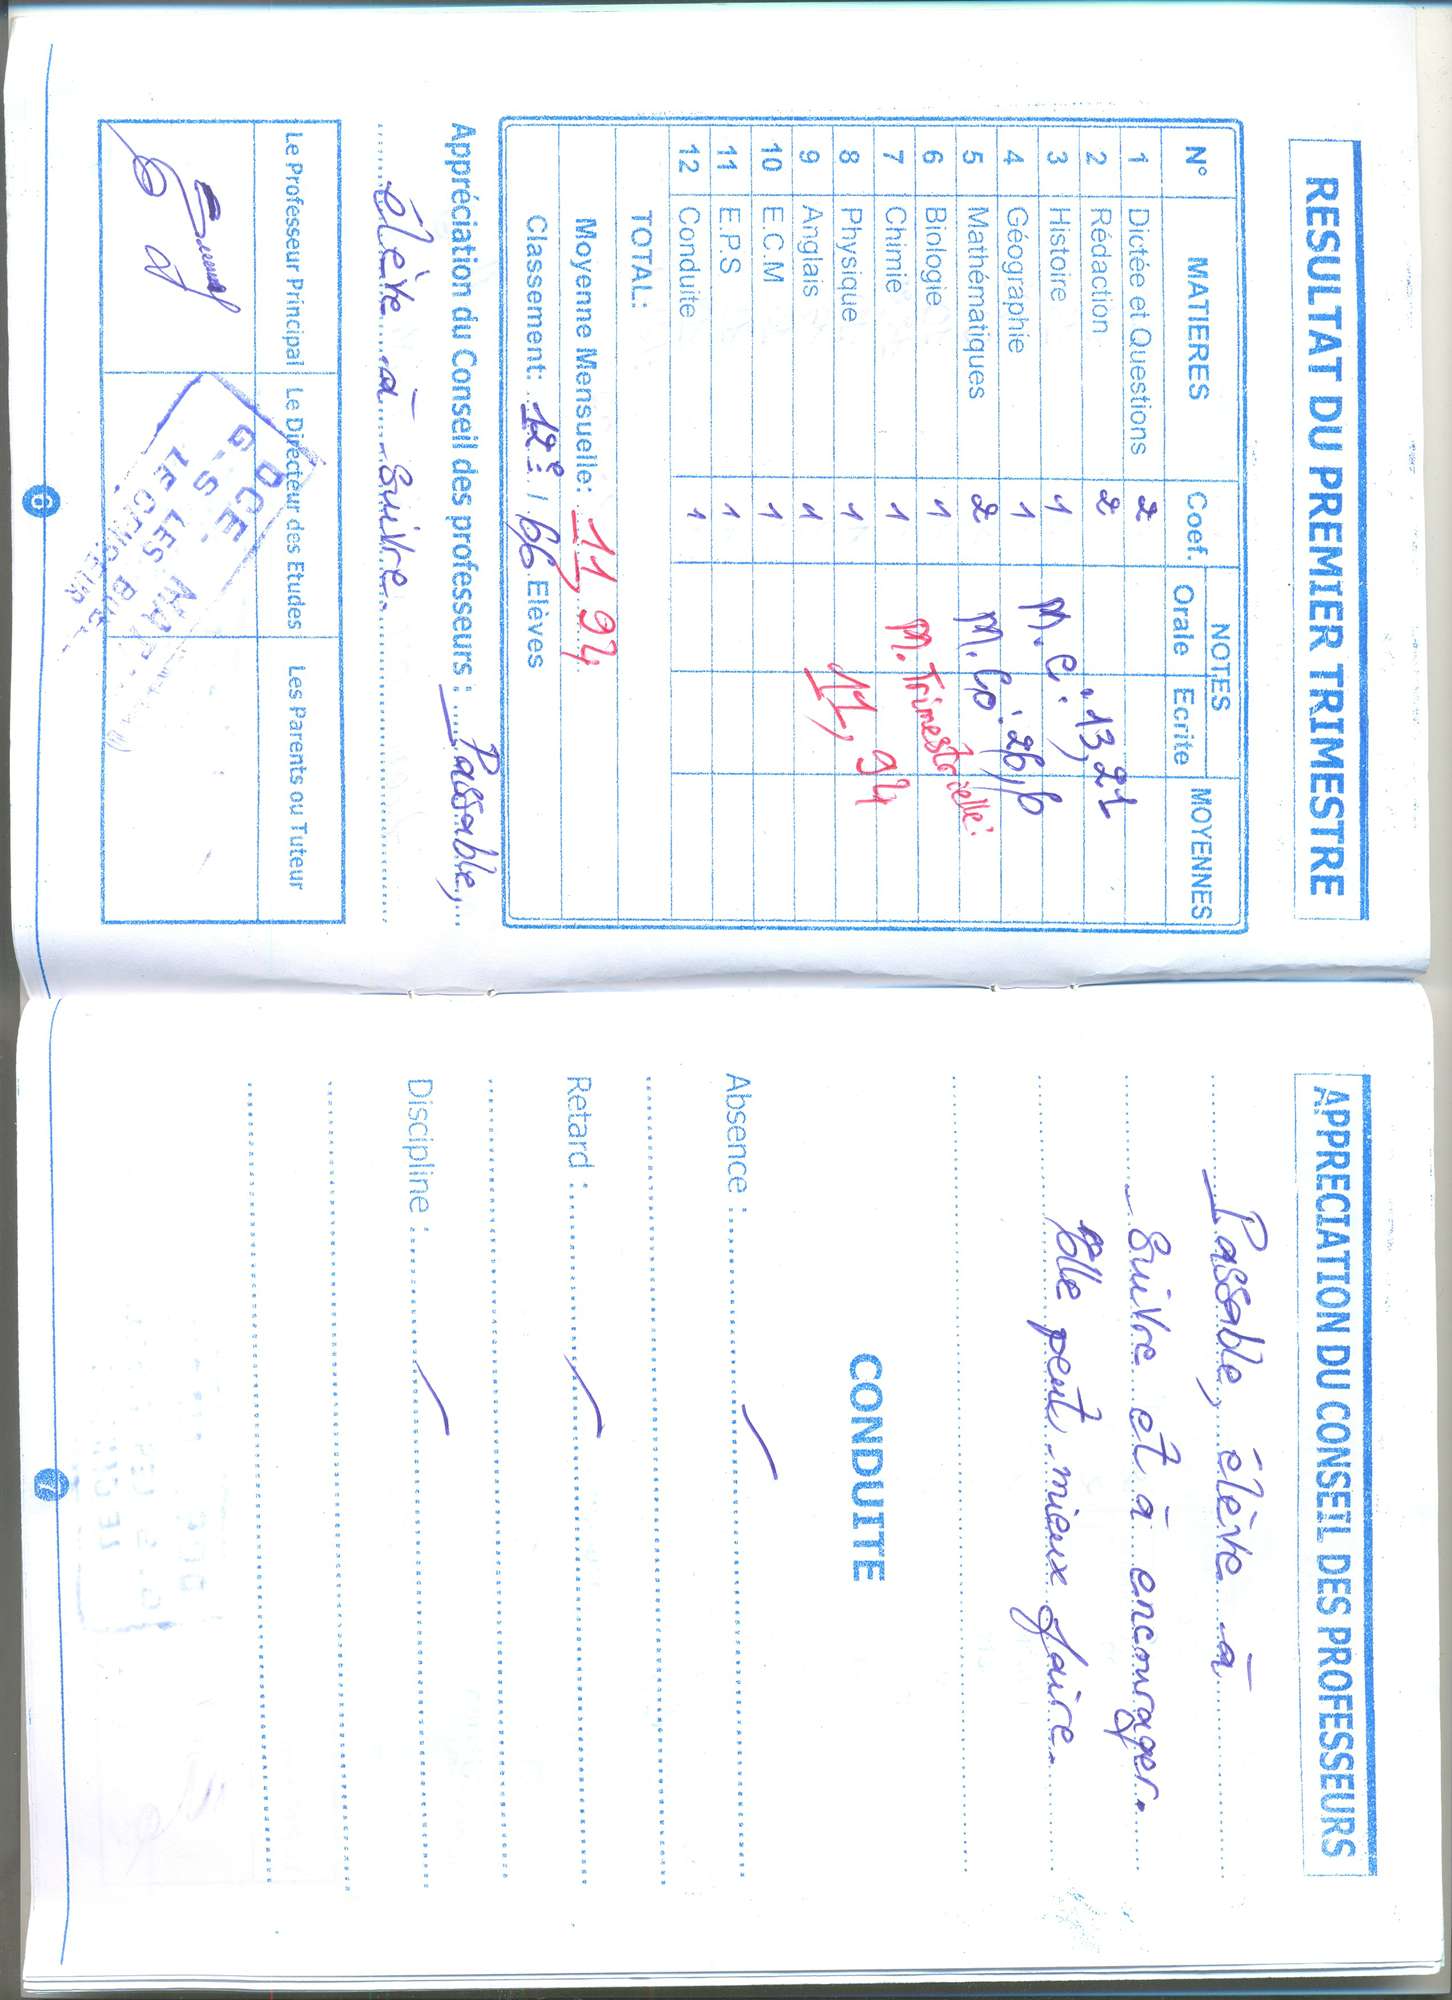 RESULTAT DU PREMIER TRIMESTRE
N° MATIERES Coef. NOTES MOYENNES
Orale Ecrite
1 Dictée et Questions 2
2 Rédaction 2
3 Histoire 1
4 Géographie 1
5 Mathématiques 2
6 Biologie 1
7 Chimie 1
8 Physique 1
9 Anglais 1
10 E.C.M 1
11 E.P.S 1
12 Conduite 1
M. Cl : 13,21
M. Co : 26,6
M. Trimestrielle :
11,94
TOTAL:
Moyenne Mensuelle: 11,94
Classement: 12e / 66 Elèves
Appréciation du Conseil des professeurs : Passable,
élève à suivre.
Le Professeur Principal Le Directeur des Etudes Les Parents ou Tuteur
DCE
G-S LES
LE CENSEUR
6
APPRECIATION DU CONSEIL DES PROFESSEURS
Passable, élève à
suivre et à encourager.
Elle peut mieux faire.
CONDUITE
Absence :
Retard :
Discipline :
7